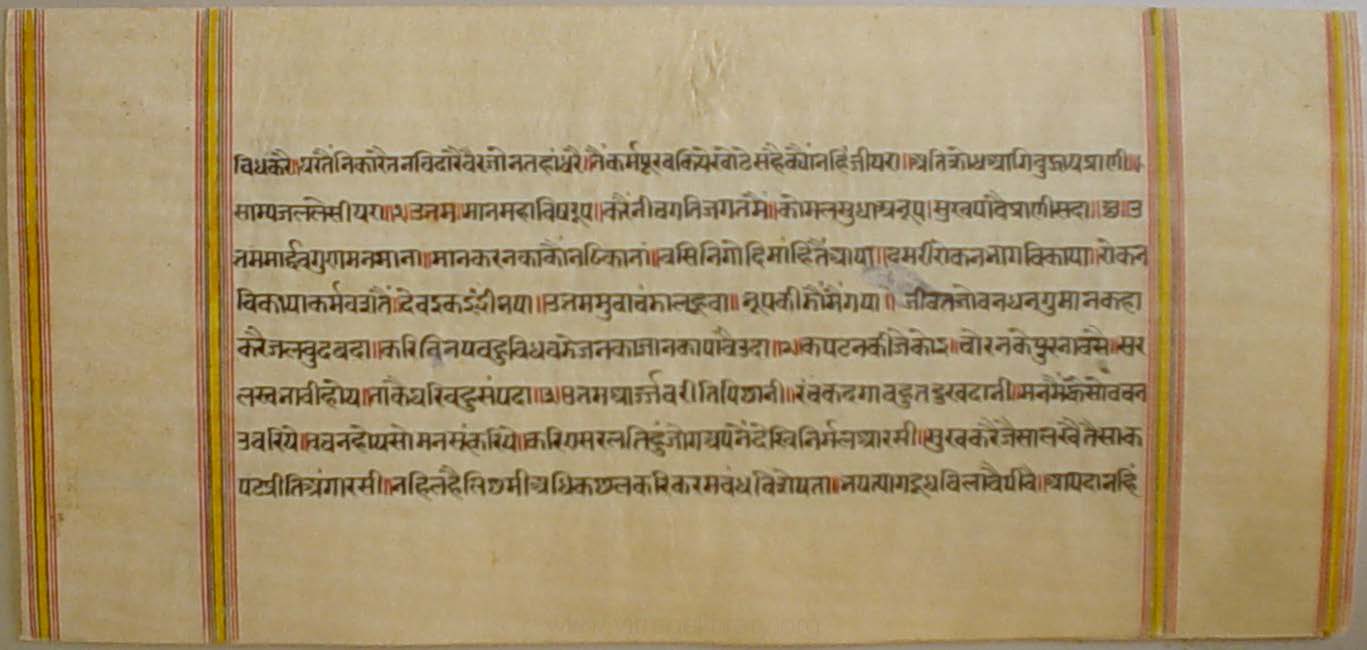 विधकरै॥घरतैंनिकारैतनविदारैवैरजोनतहांधरै॥तैंकर्मपूरवकियेखोटेसहैक्यौंनहिंजीयरा॥अतिक्रोधअगिबुझायप्राणी॥
साम्यजललेसीयरा॥१॥उतम॥मानमहाविषरूप॥करैनीचगतिजगतमैं॥कोमलसुधाअनूप॥सुखपांवैप्राणीसदा॥ उ
तममार्दवगुणमनमाना॥मानकरनकाकौंनठिकाना॥वसिनिगोदिमांहितैंआया॥दमरीरोकननागविकाया॥रोकन
विकायाकर्मवशतैं॥देवइकइंद्रीभया॥उतममुवाचंडालहूवा॥भूपकीडौंमैंगया॥जीवतजोवनधनगुमानकहा
करैजलबुदबदा॥करिविनयबहुविधबडेजनकाज्ञानकापांवैउदा॥२॥कपटनकीजेकोइ॥चोरनकेपुरनावसै॥सर
लस्वभावीहोय॥ताकैघरिबहुसंपदा॥३॥उतमआर्ज्जवरीतिवषानी॥रंचकदगाबहुतदुखदानी॥मनमैंकैसोवचन
उचरिये॥वचनहोयसोमनसूंकरिये॥करियेसरलतिहुंजोगअपनैंदेखिनिर्मलआरसी॥मुखकरैजैसालखैतैसाक
पटप्रीतिअंगारसी॥नहिलहैलिछमीअधिकछलकरिकरमबंधविशेषता॥भयत्यागदूधविलावैपीवै॥आपदानहिं